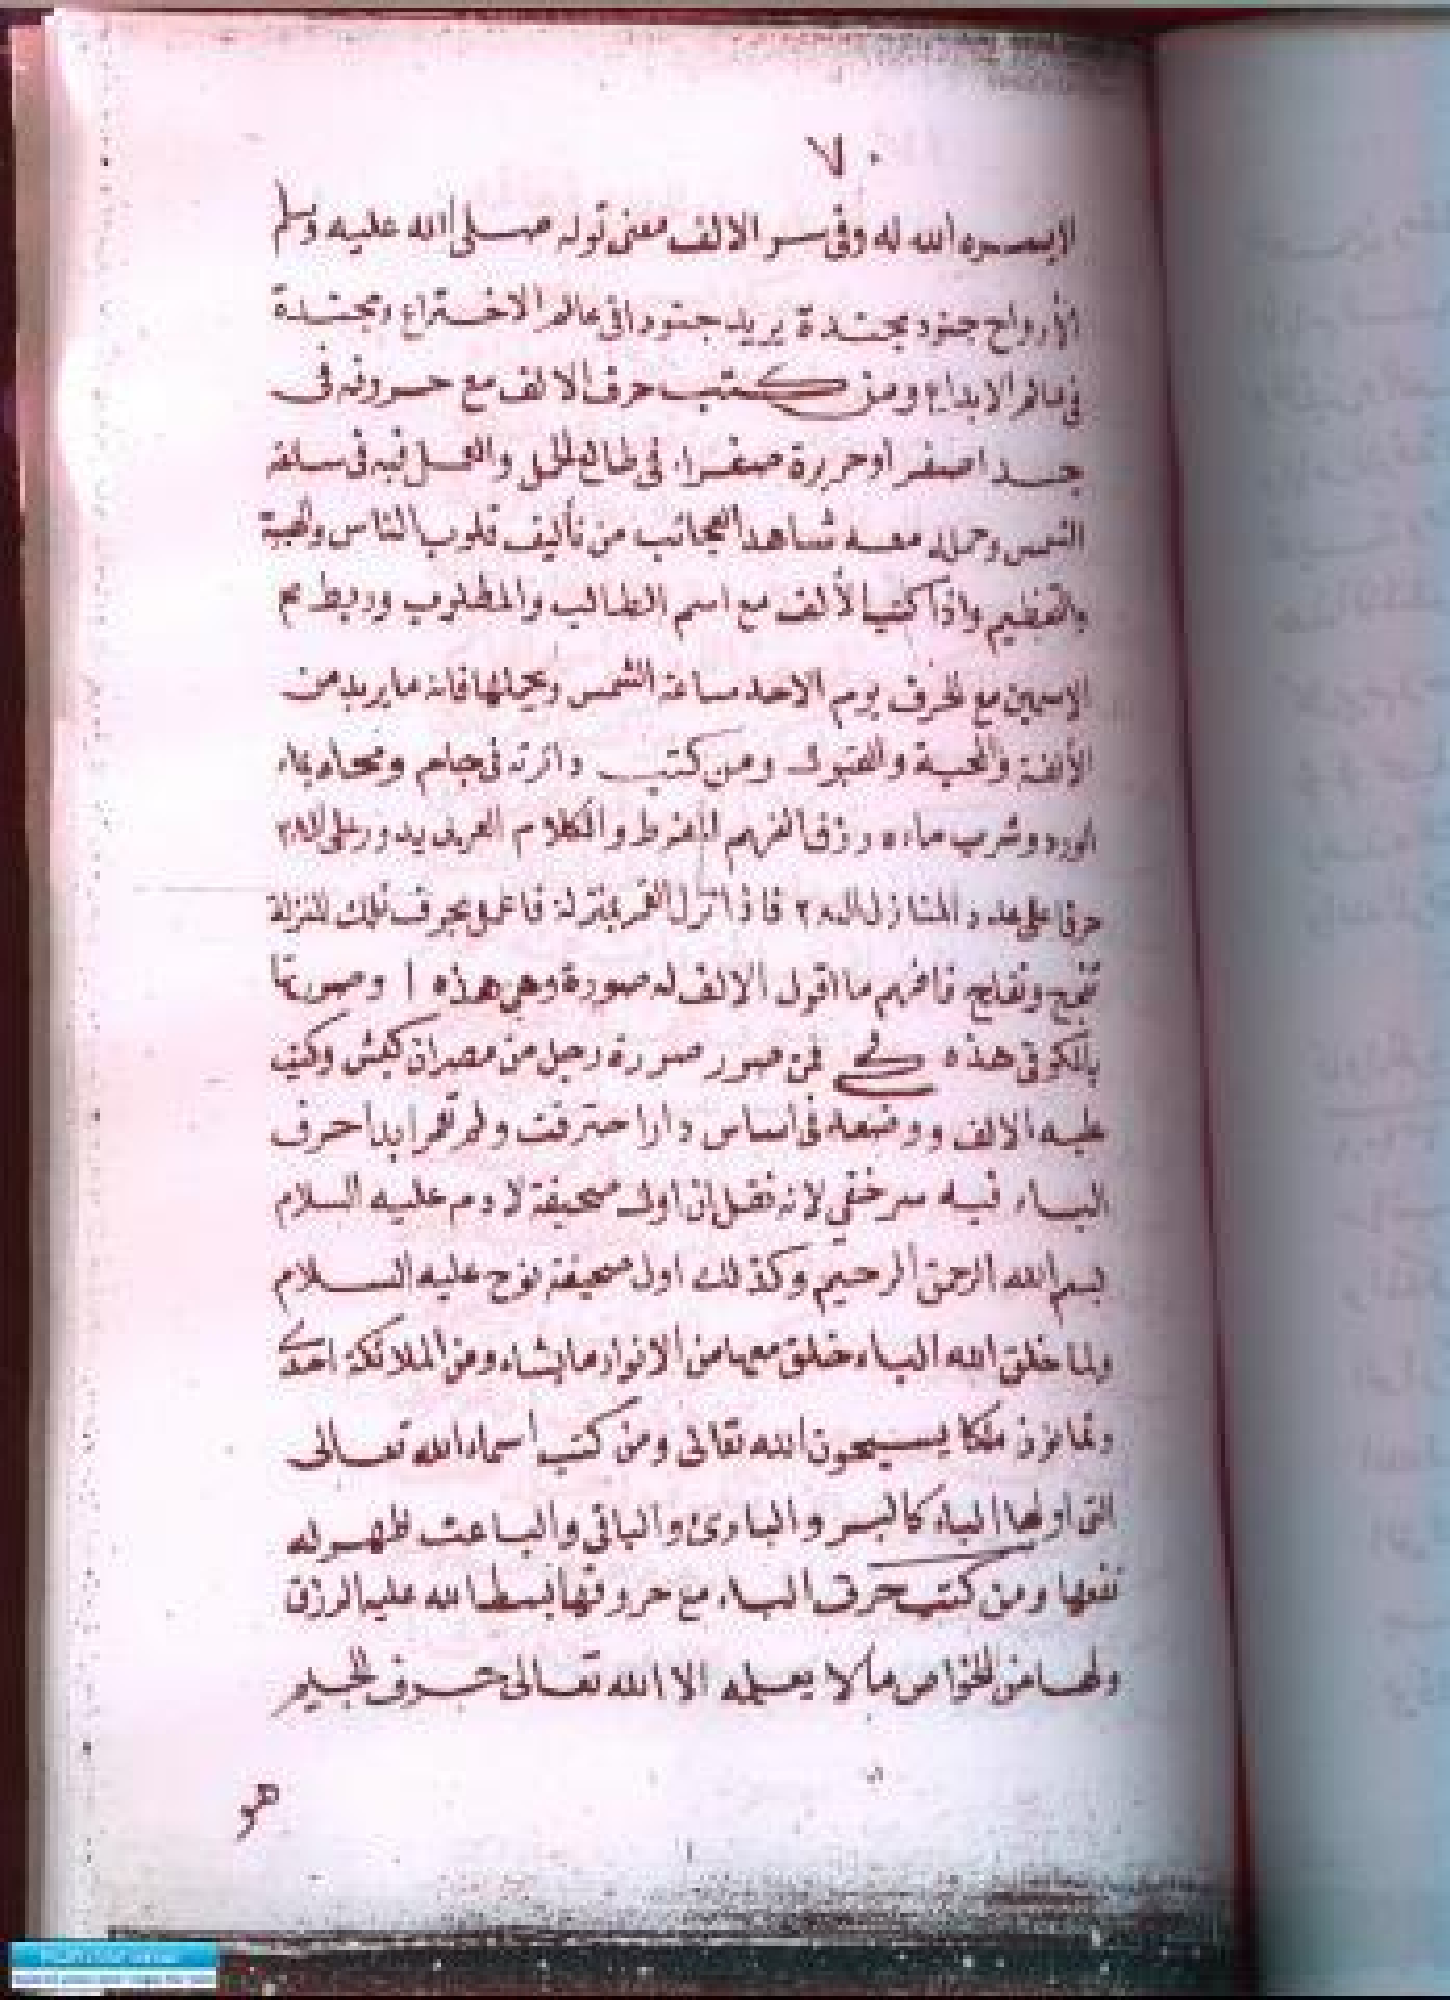 ٧٠
الا يسره الله له وفى سر الالف معنى قوله صلى الله عليه وسلم
الأرواح جنود مجندة يريد جنودا فى عالم الاختراع ومجندة
فى عالم الابداع ومن كتب حرف الالف مع حروفه فى
اصفر او حريرة صفراء فى طالع الحمل والعمل فيه فى ساعة
الشمس وحمله معه شاهد العجائب من تأليف قلوب الناس والمحبة
والتعظيم واذا كتب الألف مع اسم الطالب والمطلوب وربط مع
الاسمين مع الحرف يوم الاحد ساعة الشمس ويحملها فانه ما يريد من
الألفة والمحبة والقبول ومن كتب دائرته فى جام ومحاه بماء
الورد وشرب ماءه رزق الفهم والكلام العربى يدور على الـ٢٨
حرفا على عدد المنازل الـ٢٨ فاذا نزل القمر بمنزلة فاعمل بحرف تلك المنزلة
تنجح وتفلح فافهم ما اقول الالف له صورة وهى هذه ا وصورتها
هذه فمن صور صورة رجل من مصران كبش وكتب
عليه الالف ووضعه فى اساس دار احترقت ولم تعمر ابدا حرف
الباء فيه سر خفي لانه نقل ان اول صحيفة لادم عليه السلام
بسم الله الرحمن الرحيم وكذلك اول صحيفة نوح عليه السلام
ولما خلق الله الباء خلق معها من الانوار ما يشاء ومن الملائكة احدى
وثمانون ملكا يسبحون الله تعالى ومن كتب اسماء الله تعالى
التى اولها الباء كالبر والبارئ والباقى والباعث ظهر له
نفعها ومن كتب حرف الباء مع حروفها بسط الله عليه الرزق
ولها من الخواص ما لا يعلمه الا الله تعالى حرف الجيم
هو